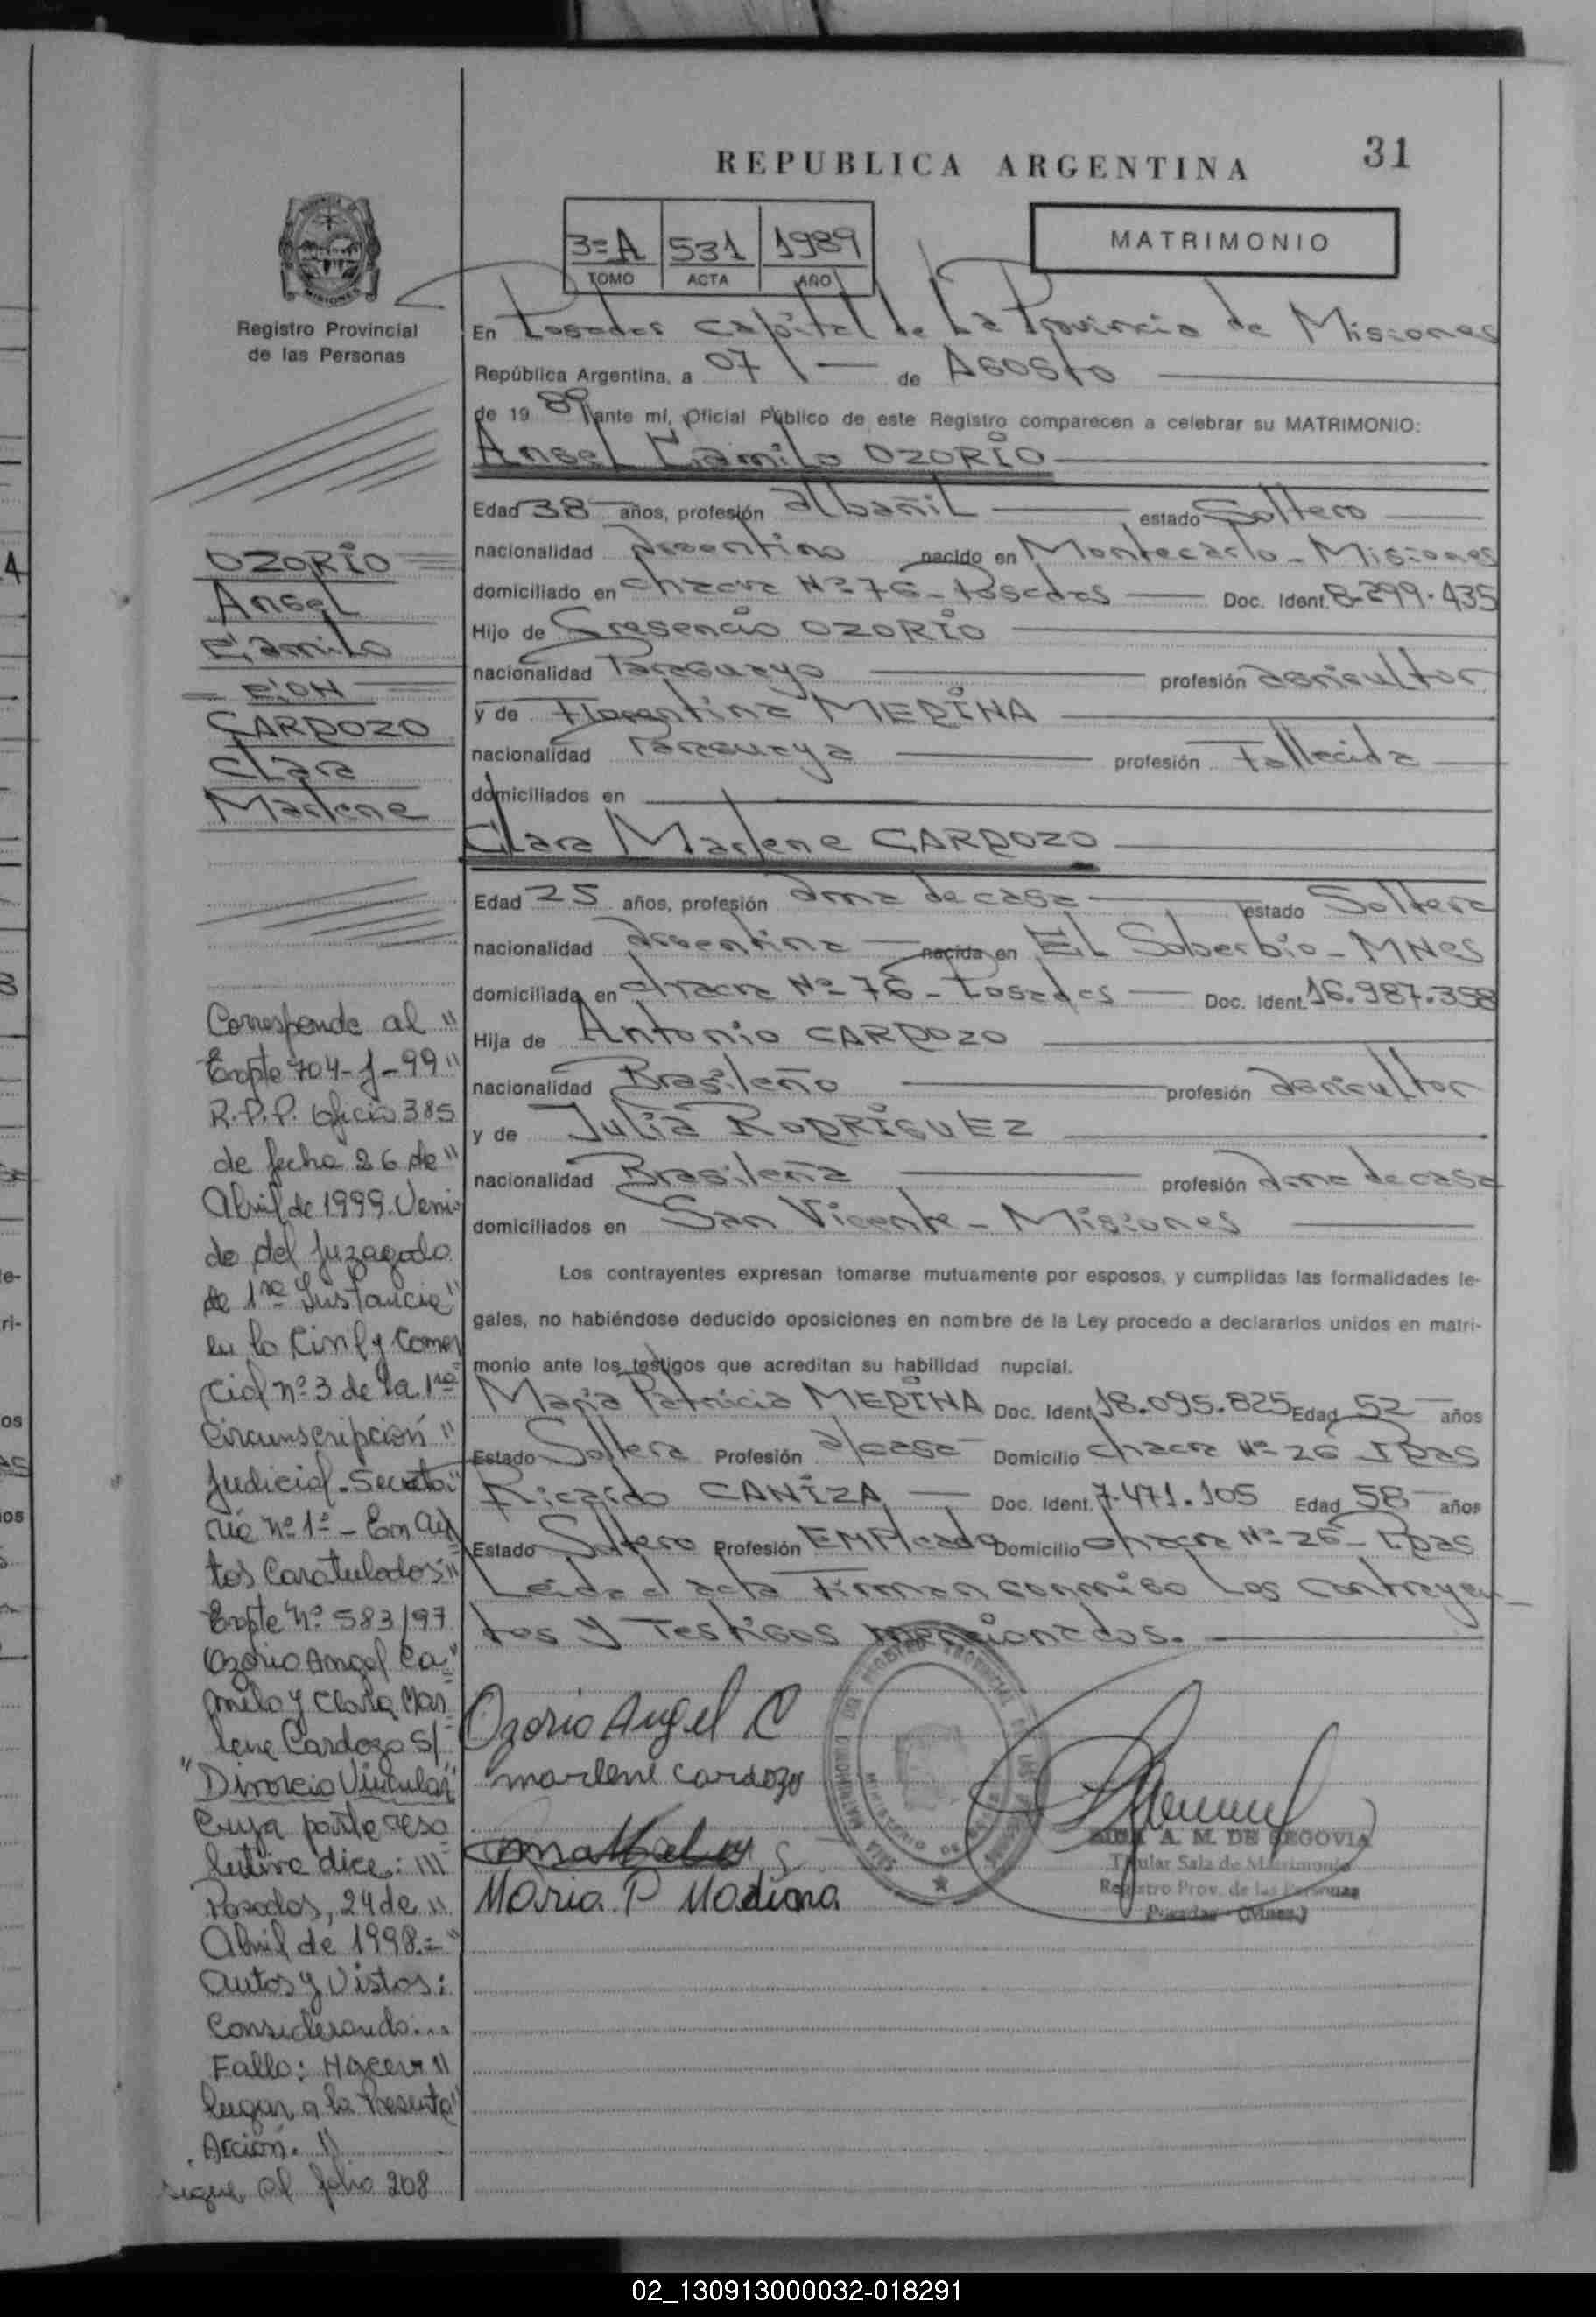 REPUBLICA ARGENTINA
31
3=A 531 1989
TOMO ACTA AÑO
MATRIMONIO
MISIONES
Registro Provincial
de las Personas
En Posadas Capital de La Provincia de Misiones
República Argentina, a 07 de Agosto
de 19 89 ante mí, Oficial Público de este Registro comparecen a celebrar su MATRIMONIO:
Angel Camilo OZORIO
Edad 38 años, profesión albañil estado Soltero
nacionalidad Argentino nacido en Montecarlo - Misiones
domiciliado en chacra Nº 76 - Posadas Doc. Ident. 8.299.435
Hijo de Gresencio OZORIO
nacionalidad Paraguayo profesión agricultor
y de Florentina MEDINA
nacionalidad Paraguaya profesión Fallecida
domiciliados en
Clara Marlene CARDOZO
Edad 25 años, profesión ama de casa estado Soltera
nacionalidad argentina nacida en El Soberbio - MNes
domiciliada en chacra Nº 76 - Posadas Doc. Ident. 16.987.358
Hija de Antonio CARDOZO
nacionalidad Brasileño profesión agricultor
y de Julia RODRIGUEZ
nacionalidad Brasileña profesión ama de casa
domiciliados en San Vicente - Misiones
Los contrayentes expresan tomarse mutuamente por esposos, y cumplidas las formalidades le-
gales, no habiéndose deducido oposiciones en nombre de la Ley procedo a declararlos unidos en matri-
monio ante los testigos que acreditan su habilidad nupcial.
Maria Patricia MEDINA Doc. Ident 18.095.825 Edad 52 años
Estado Soltera Profesión a/casa Domicilio chacra Nº 26 Pdas
Ricardo CANIZA Doc. Ident. 7.471.105 Edad 58 años
Estado Soltero Profesión EMPleado Domicilio chacra Nº 26 - Pdas
Leida el acta Firman conmigo Los contrayen
tes y Testigos mencionados.
Ozorio Angel C
marlene cardozo
Maria. P Madina
A. M. DE SEGOVIA
Titular Sala de Matrimonio
Registro Prov. de las Personas
Posadas - (Mnes.)
OZORIO
Angel
Camilo
CON
CARDOZO
Clara
Marlene
Corresponde al "
Expte 704-J-99"
R.P.P. Oficio 385
de fecha 26 de "
Abril de 1999. Veni-
do del Juzagado
de 1ra Instancia"
en lo Civil y Comer
cial nº 3 de la 1ra
Circunscripción "
Judicial - Secreta"
ria nº 1º - En Au
tos Caratulados:"
Expte Nº 583/97
Ozorio Angel Ca"
milo y Clara Mar
lene Cardozo S/
"Divorcio Vincular"
Cuya parte reso
lutiva dice: "
Posadas, 24 de "
Abril de 1998.=
Autos y Vistos:
Considerando...
Fallo: Hacer "
lugar a la Presente"
Acción. "
sigue al folio 208
02_130913000032-018291